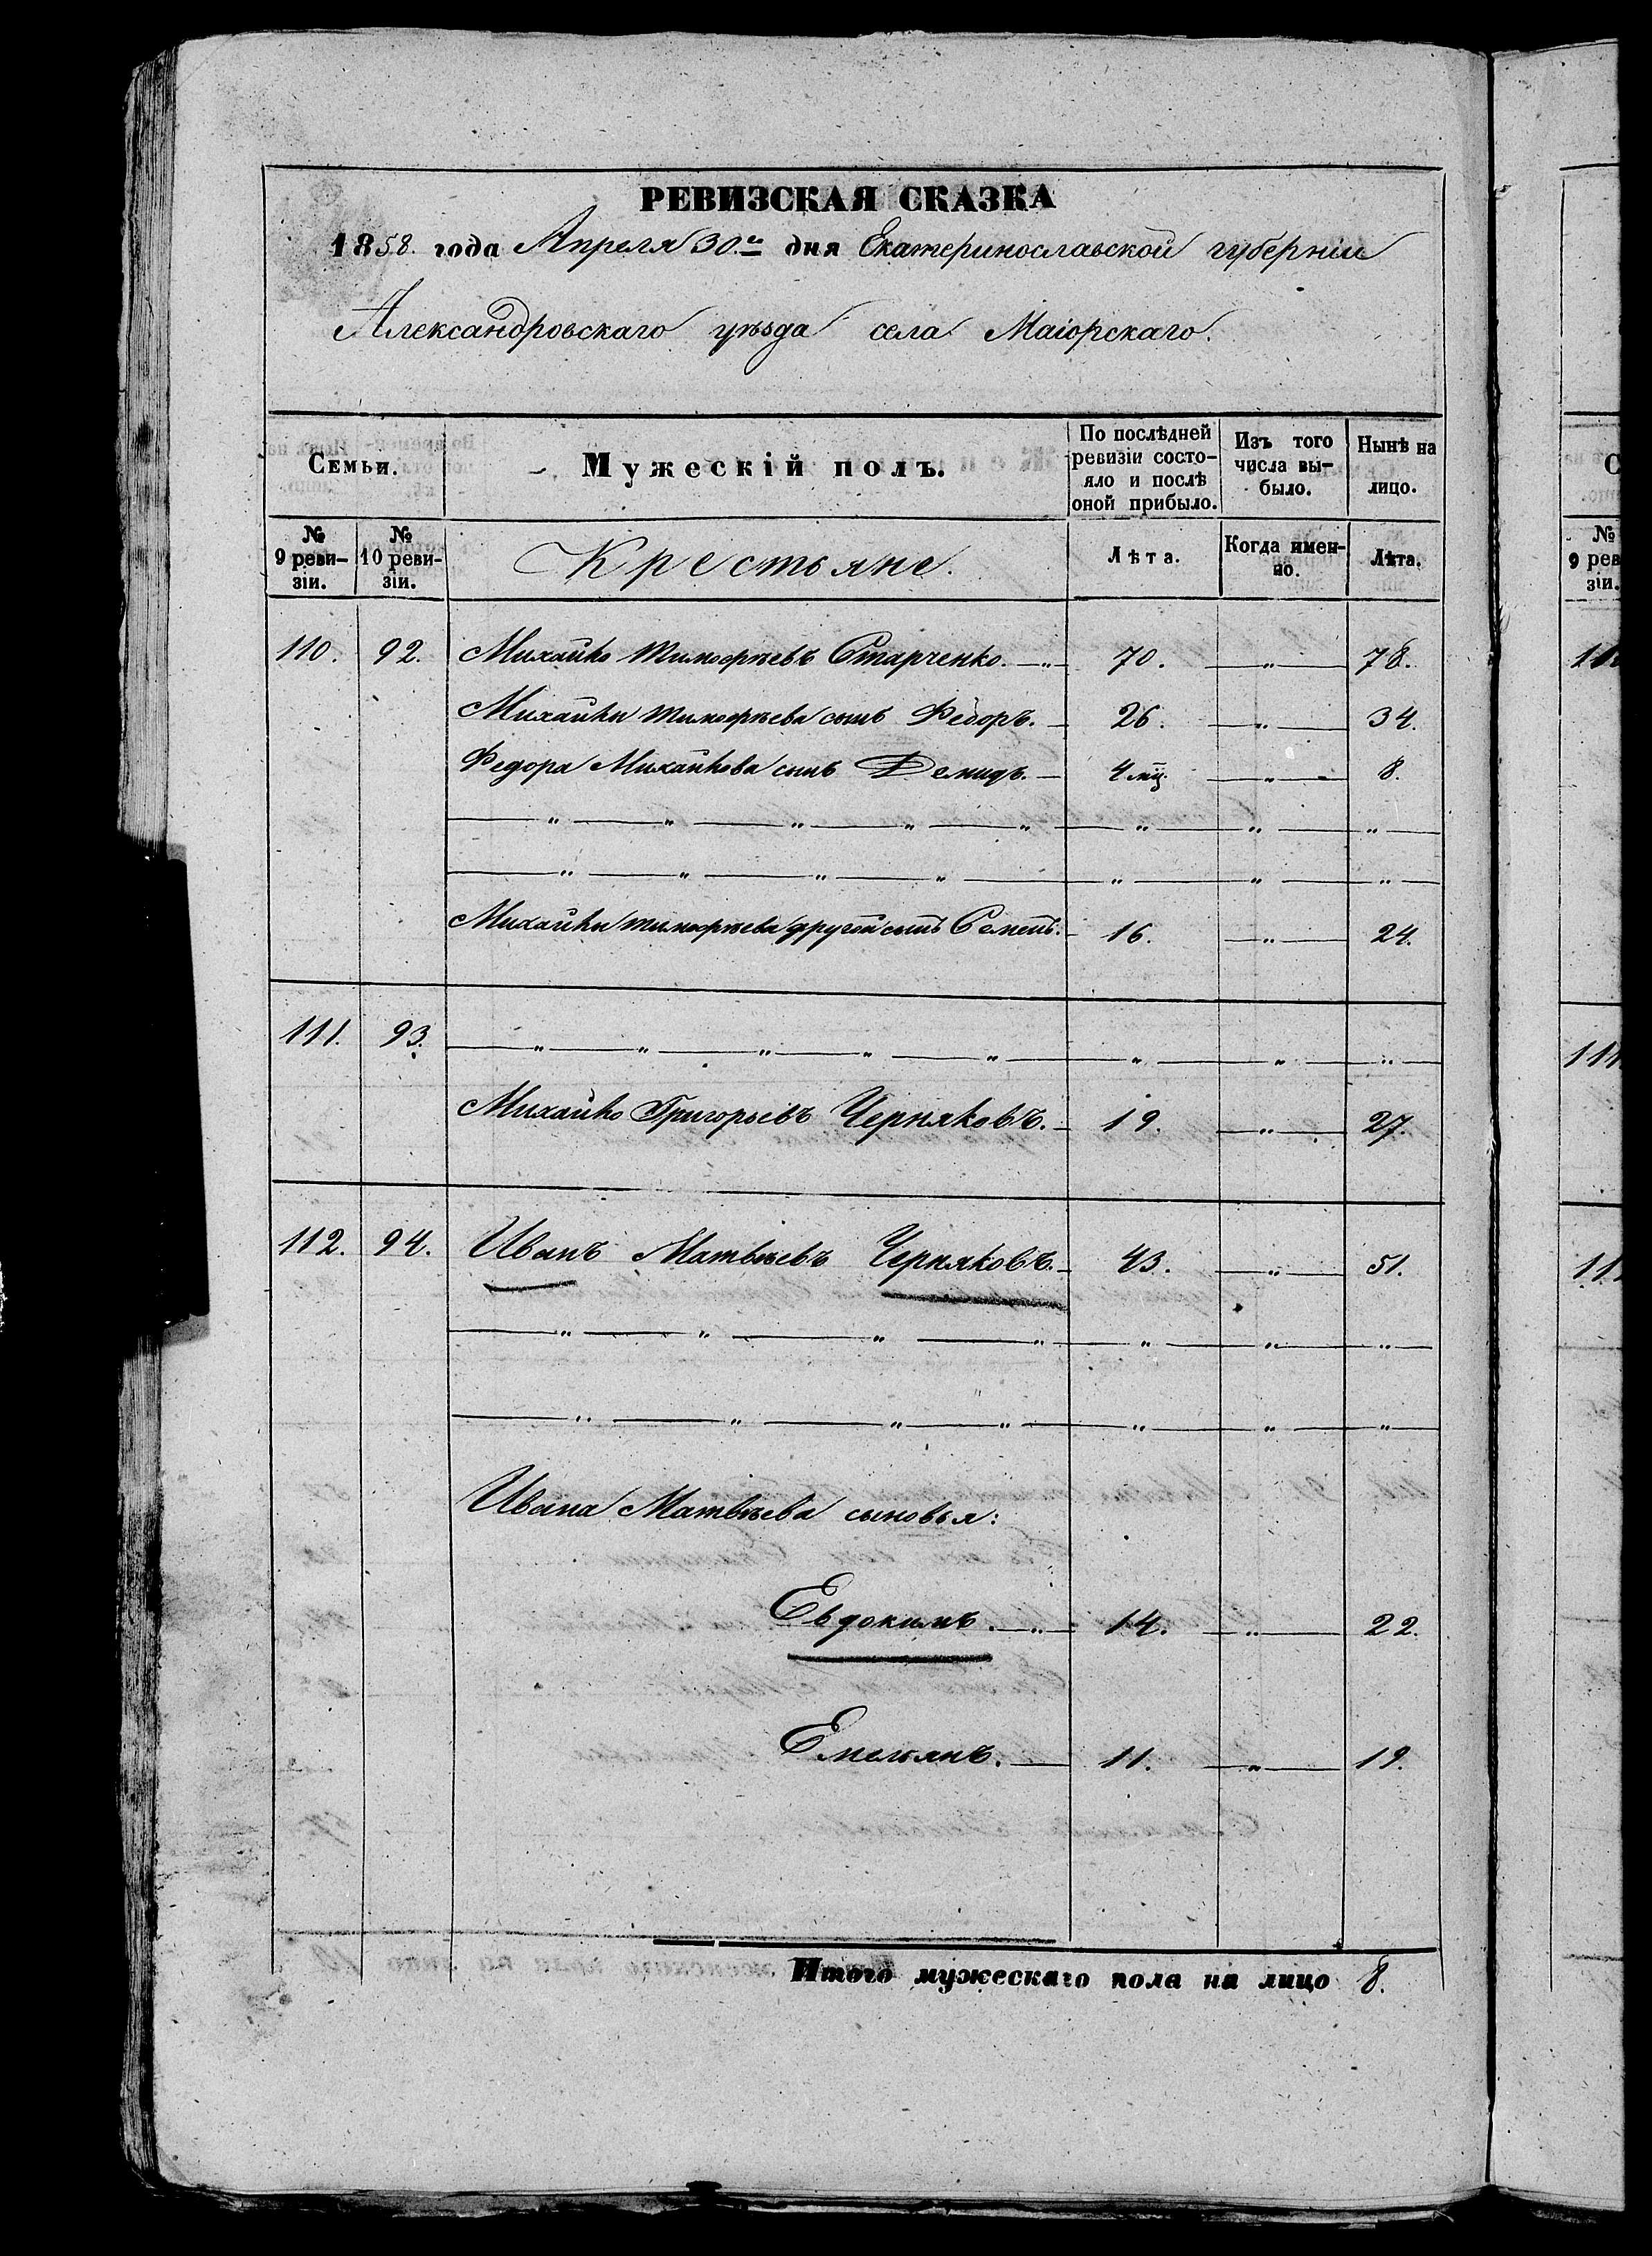 РЕВИЗСКАЯ СКАЗКА
1858. года Апреля 30.го дня Екатеринославской губерніи
Александровскаго уѣзда села Маіорскаго.
Семьи.
Мужескій полъ.
По послѣдней ревизіи состо-
яло и послѣ
оной прибыло.
Изъ того
числа вы-
было.
Нынѣ на
лицо.
№
9 реви-
зіи.
№
10 реви-
зіи.
Крестьяне.
Лѣта.
Когда имен-
но.
Лѣта.
110. 92. Михайко Тимофѣевъ Старченко. — „ 70. — „ — 78.
Михайки Тимофѣева сынъ Федоръ. — 26. — „ — 34.
Федора Михайкова сынъ Демидъ. — 4 мц. — „ — 8.
— „ — „ — „ — „ — „ — „ — „ — „ —
— „ — „ — „ — „ — „ — „ — „ —
Михайки Тимофѣева другой сынъ Семенъ. — 16. — „ — 24.
111. 93. — „ — „ — „ — „ — „ — „ — „ — „
Михайко Григорьевъ Черняковъ. — 19. — „ — 27.
112. 94. Иванъ Матвѣевъ Черняковъ. — 43. — „ — 51.
— „ — „ — „ — „ — „ — „ — „ —
— „ — „ — „ — „ — „ — „ — „ —
Ивана Матвѣева сыновья:
Евдокимъ. — „ — 14. — „ — 22.
Емельянъ. — 11. — „ — 19.
Итого мужескаго пола на лицо 8.
№
9 рев
зіи.